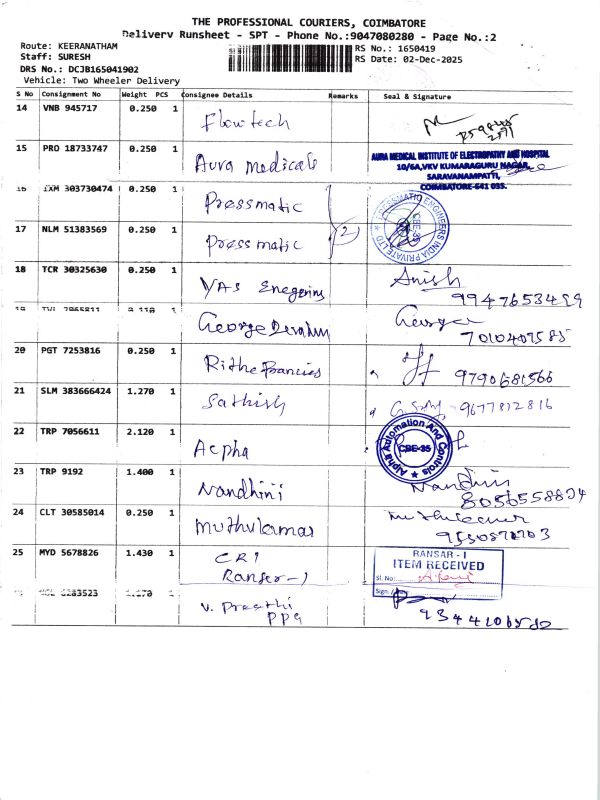 THE PROFESSIONAL COURIERS, COIMBATORE
Delivery Runsheet - SPT - Phone No.:9047080280 - Page No.:2
Route: KEERANATHAM
RS No.: 1650419
Staff: SURESH
RS Date: 02-Dec-2025
DRS No.: DCJB165041902
Vehicle: Two Wheeler Delivery
S No Consignment No Weight PCS Consignee Details Remarks Seal & Signature
14 VNB 945717 0.250 1 Flowtech
15 PRO 18733747 0.250 1 Aura medicals
AURA MEDICAL INSTITUTE OF ELECTROPATHY AND HOSPITAL
10/6A, VKV KUMARAGURU NAGAR,
SARAVANAMPATTI,
COIMBATORE-641 035.
16 IXM 303730474 0.250 1 Pressmatic
PRESSMATIC ENGINEERS INDIA PRIVATE LTD
CBE-35
17 NLM 51383569 0.250 1 Pressmatic 2
18 TCR 30325630 0.250 1 VAS Anish
George
20 PGT 7253816 0.250 1 9790681566
21 SLM 383666424 1.270 1 Sathish 9677812816
22 TRP 7056611 2.120 1 Acpha
Alpha Automation And Controls
CBE-35
23 TRP 9192 1.400 1 Nandhini Nandhini
24 CLT 30585014 0.250 1 Muthukumar
25 MYD 5678826 1.430 1 CRI
Ranser-1
RANSAR - I
ITEM RECEIVED
Sl. No:
Sign
V. Preethi
PPG